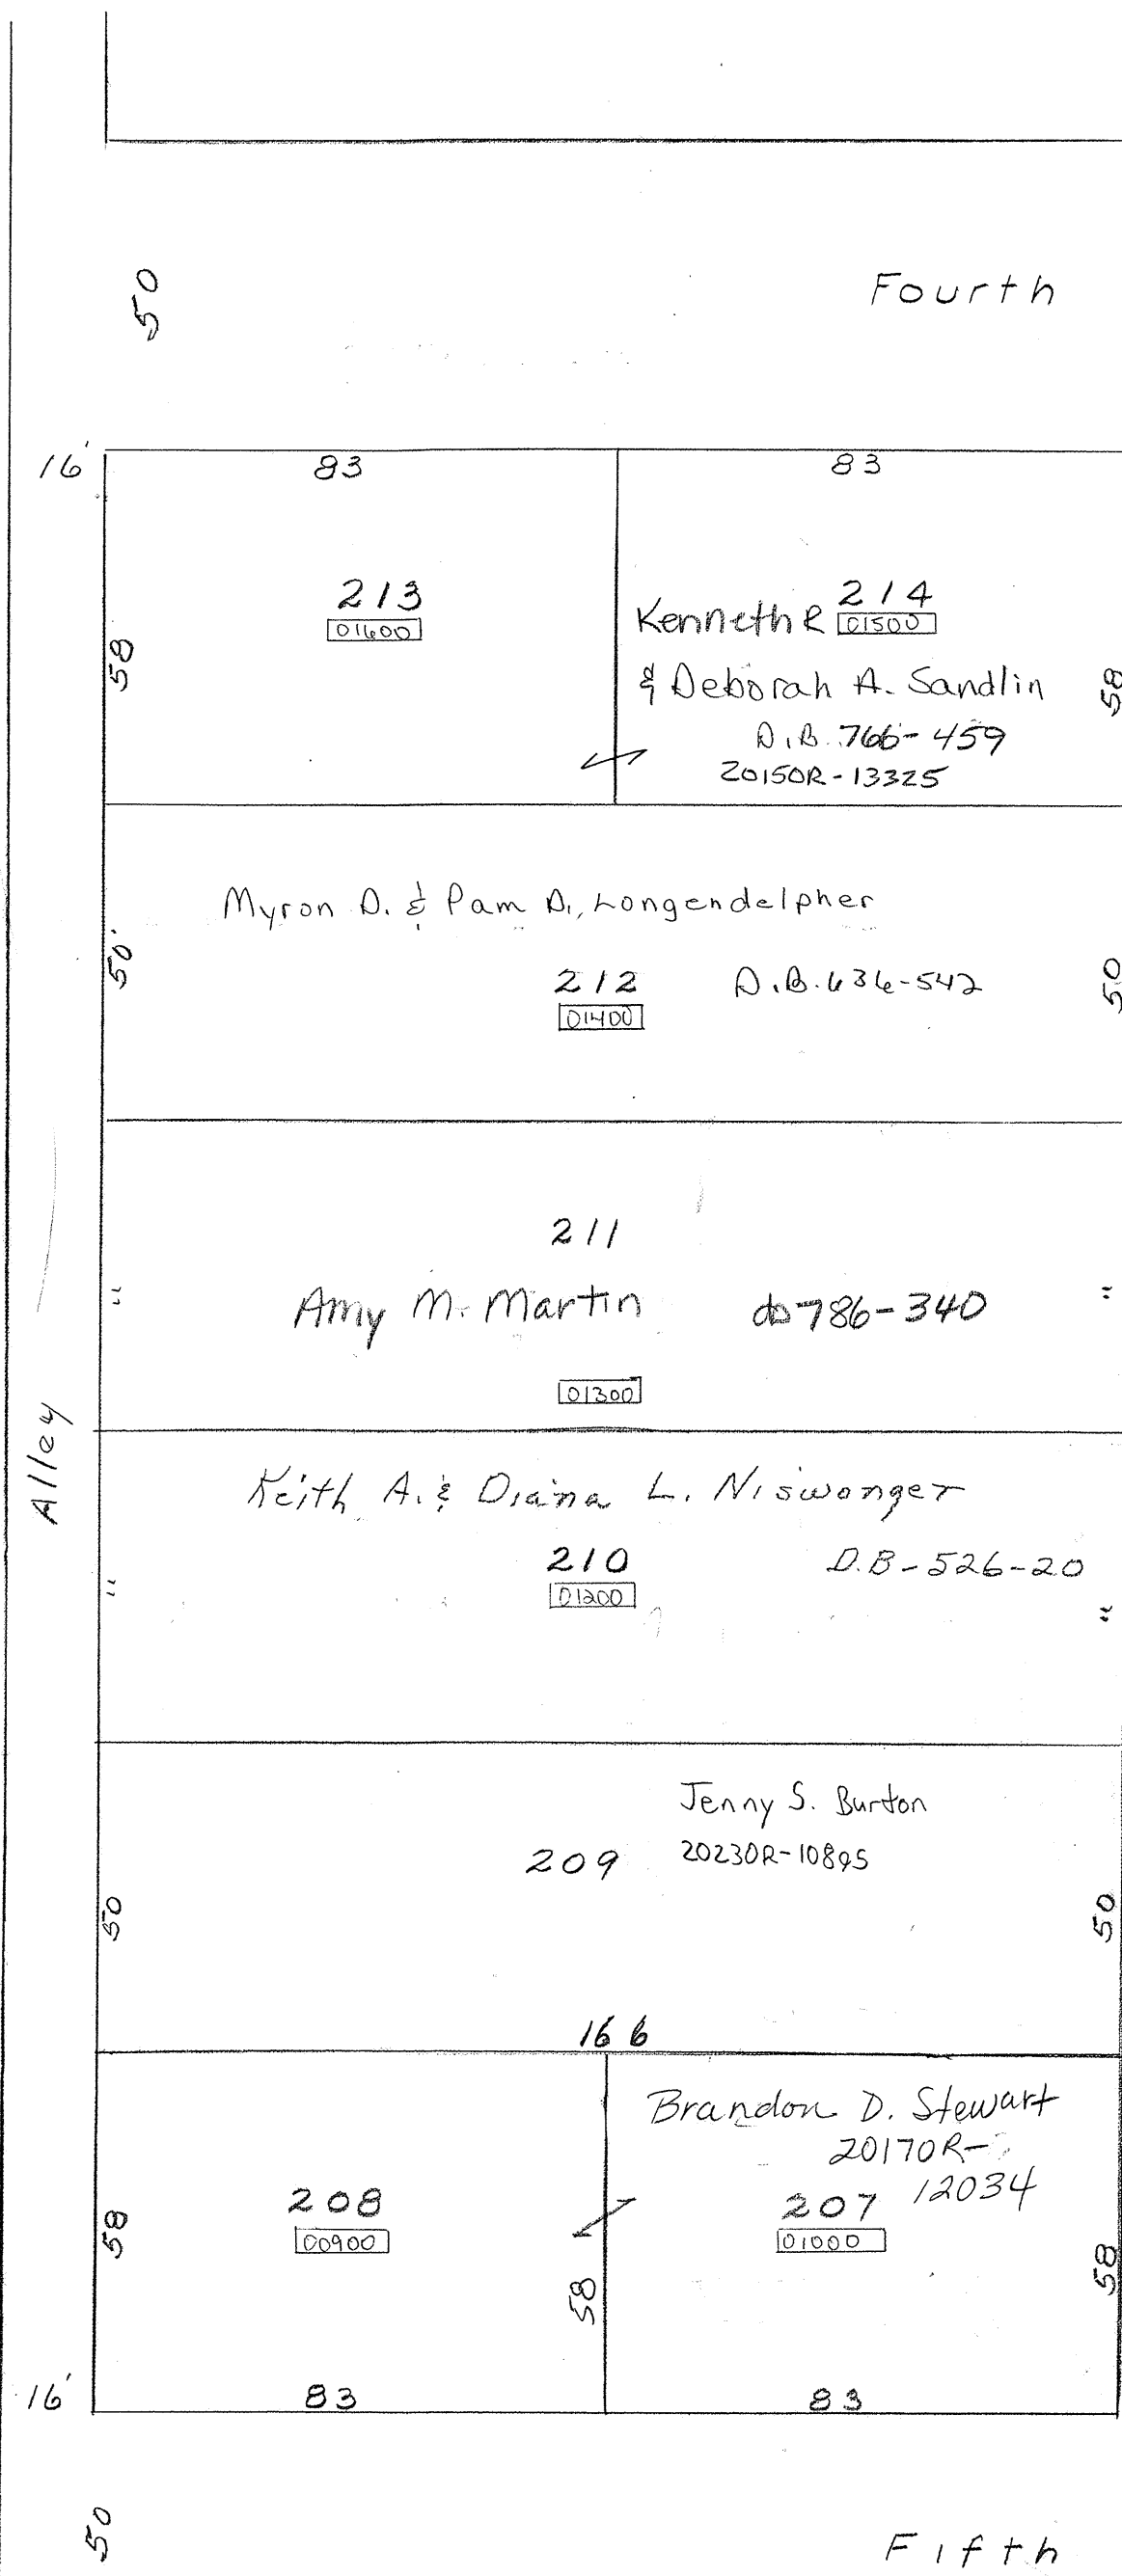 50
Fourth
16'
83
83
213
01600
58
214
Kenneth R 01500
& Deborah A. Sandlin
58
D.B. 766-459
20150R-13325
Myron D. & Pam D. Longendelpher
50'
212
D.B. 636-542
50
01400
211
"
Amy M. Martin
db 786-340
"
01300
Alley
Keith A. & Diana L. Niswonger
210
D.B-526-20
"
01200
"
Jenny S. Burton
209
20230R-10895
50
50
166
Brandon D. Stewart
20170R-
12034
208
207
00900
01000
58
58
58
16'
83
83
50
Fifth